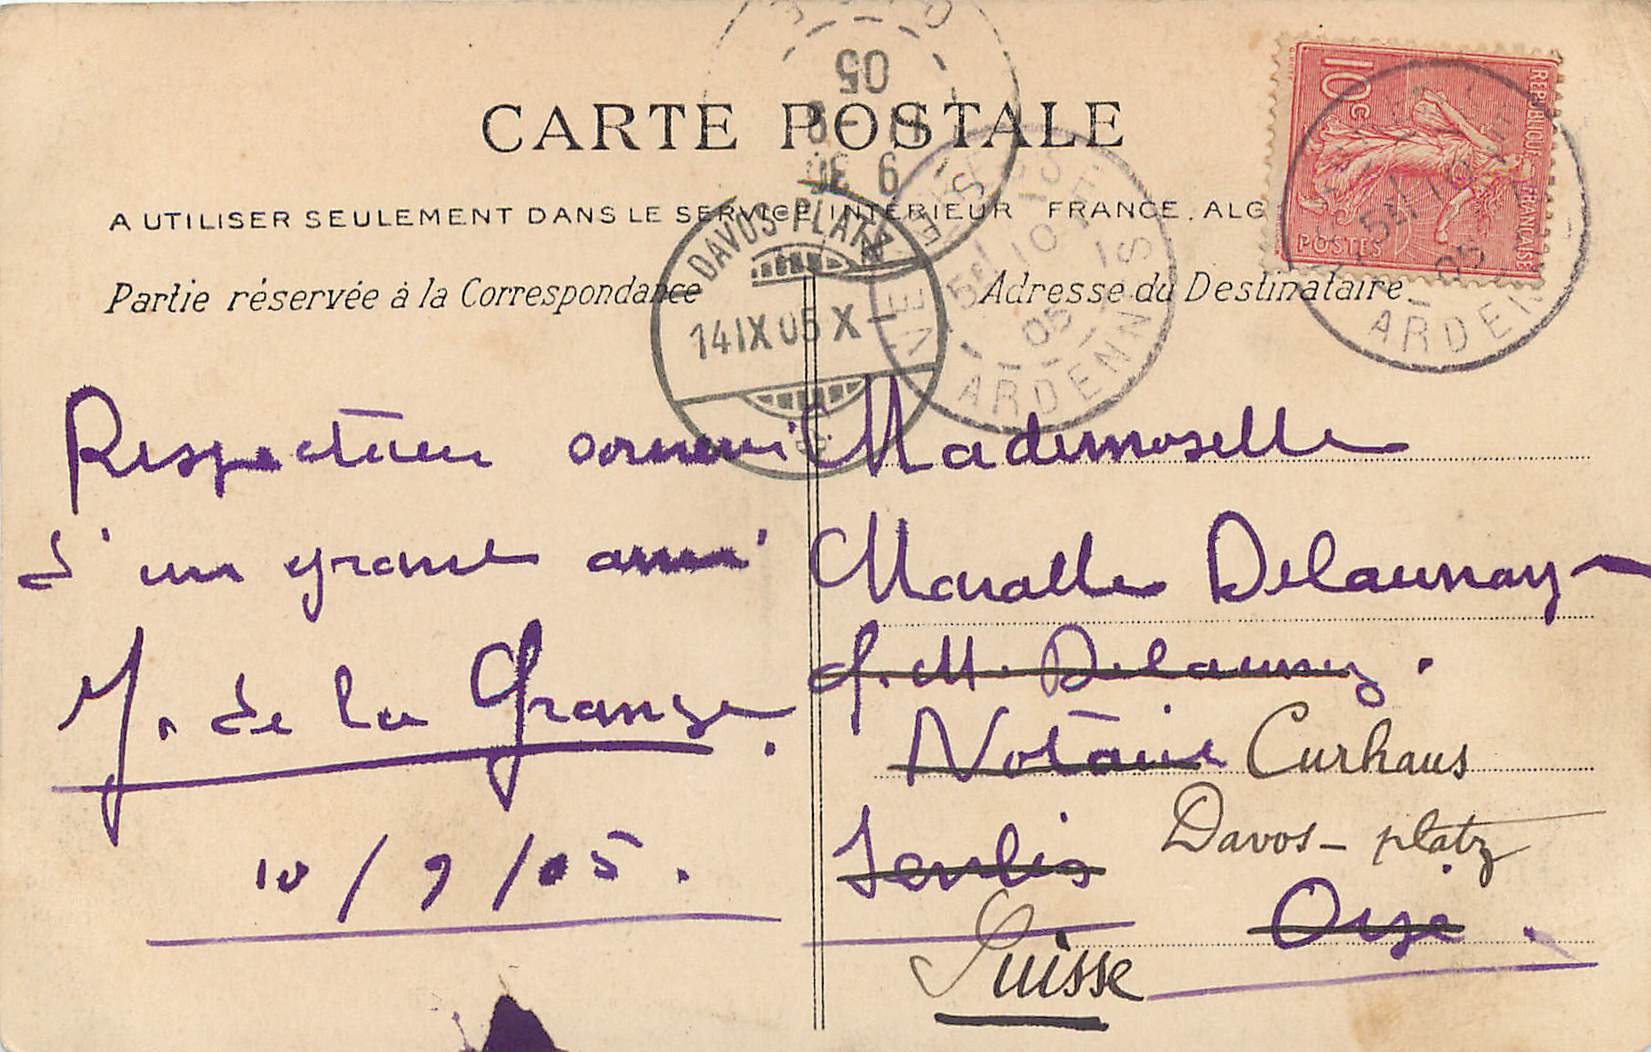 CARTE POSTALE
A UTILISER SEULEMENT DANS LE SERVICE INTÉRIEUR FRANCE, ALG
Partie réservée à la Correspondance
Adresse du Destinataire
10c
REPUBLIQUE FRANÇAISE
POSTES
ARDENNES
ARDEN
05
9 30
11 - 9
05
DAVOS-PLATZ
14 IX 05 X -
Respectueux souvenir
d'un grand ami
J. de la Grange.
10/9/05.
Mademoiselle
Delaunay
M. Delaunay.
Notaire
Curhaus
Senlis
Davos-platz
Oise.
Suisse